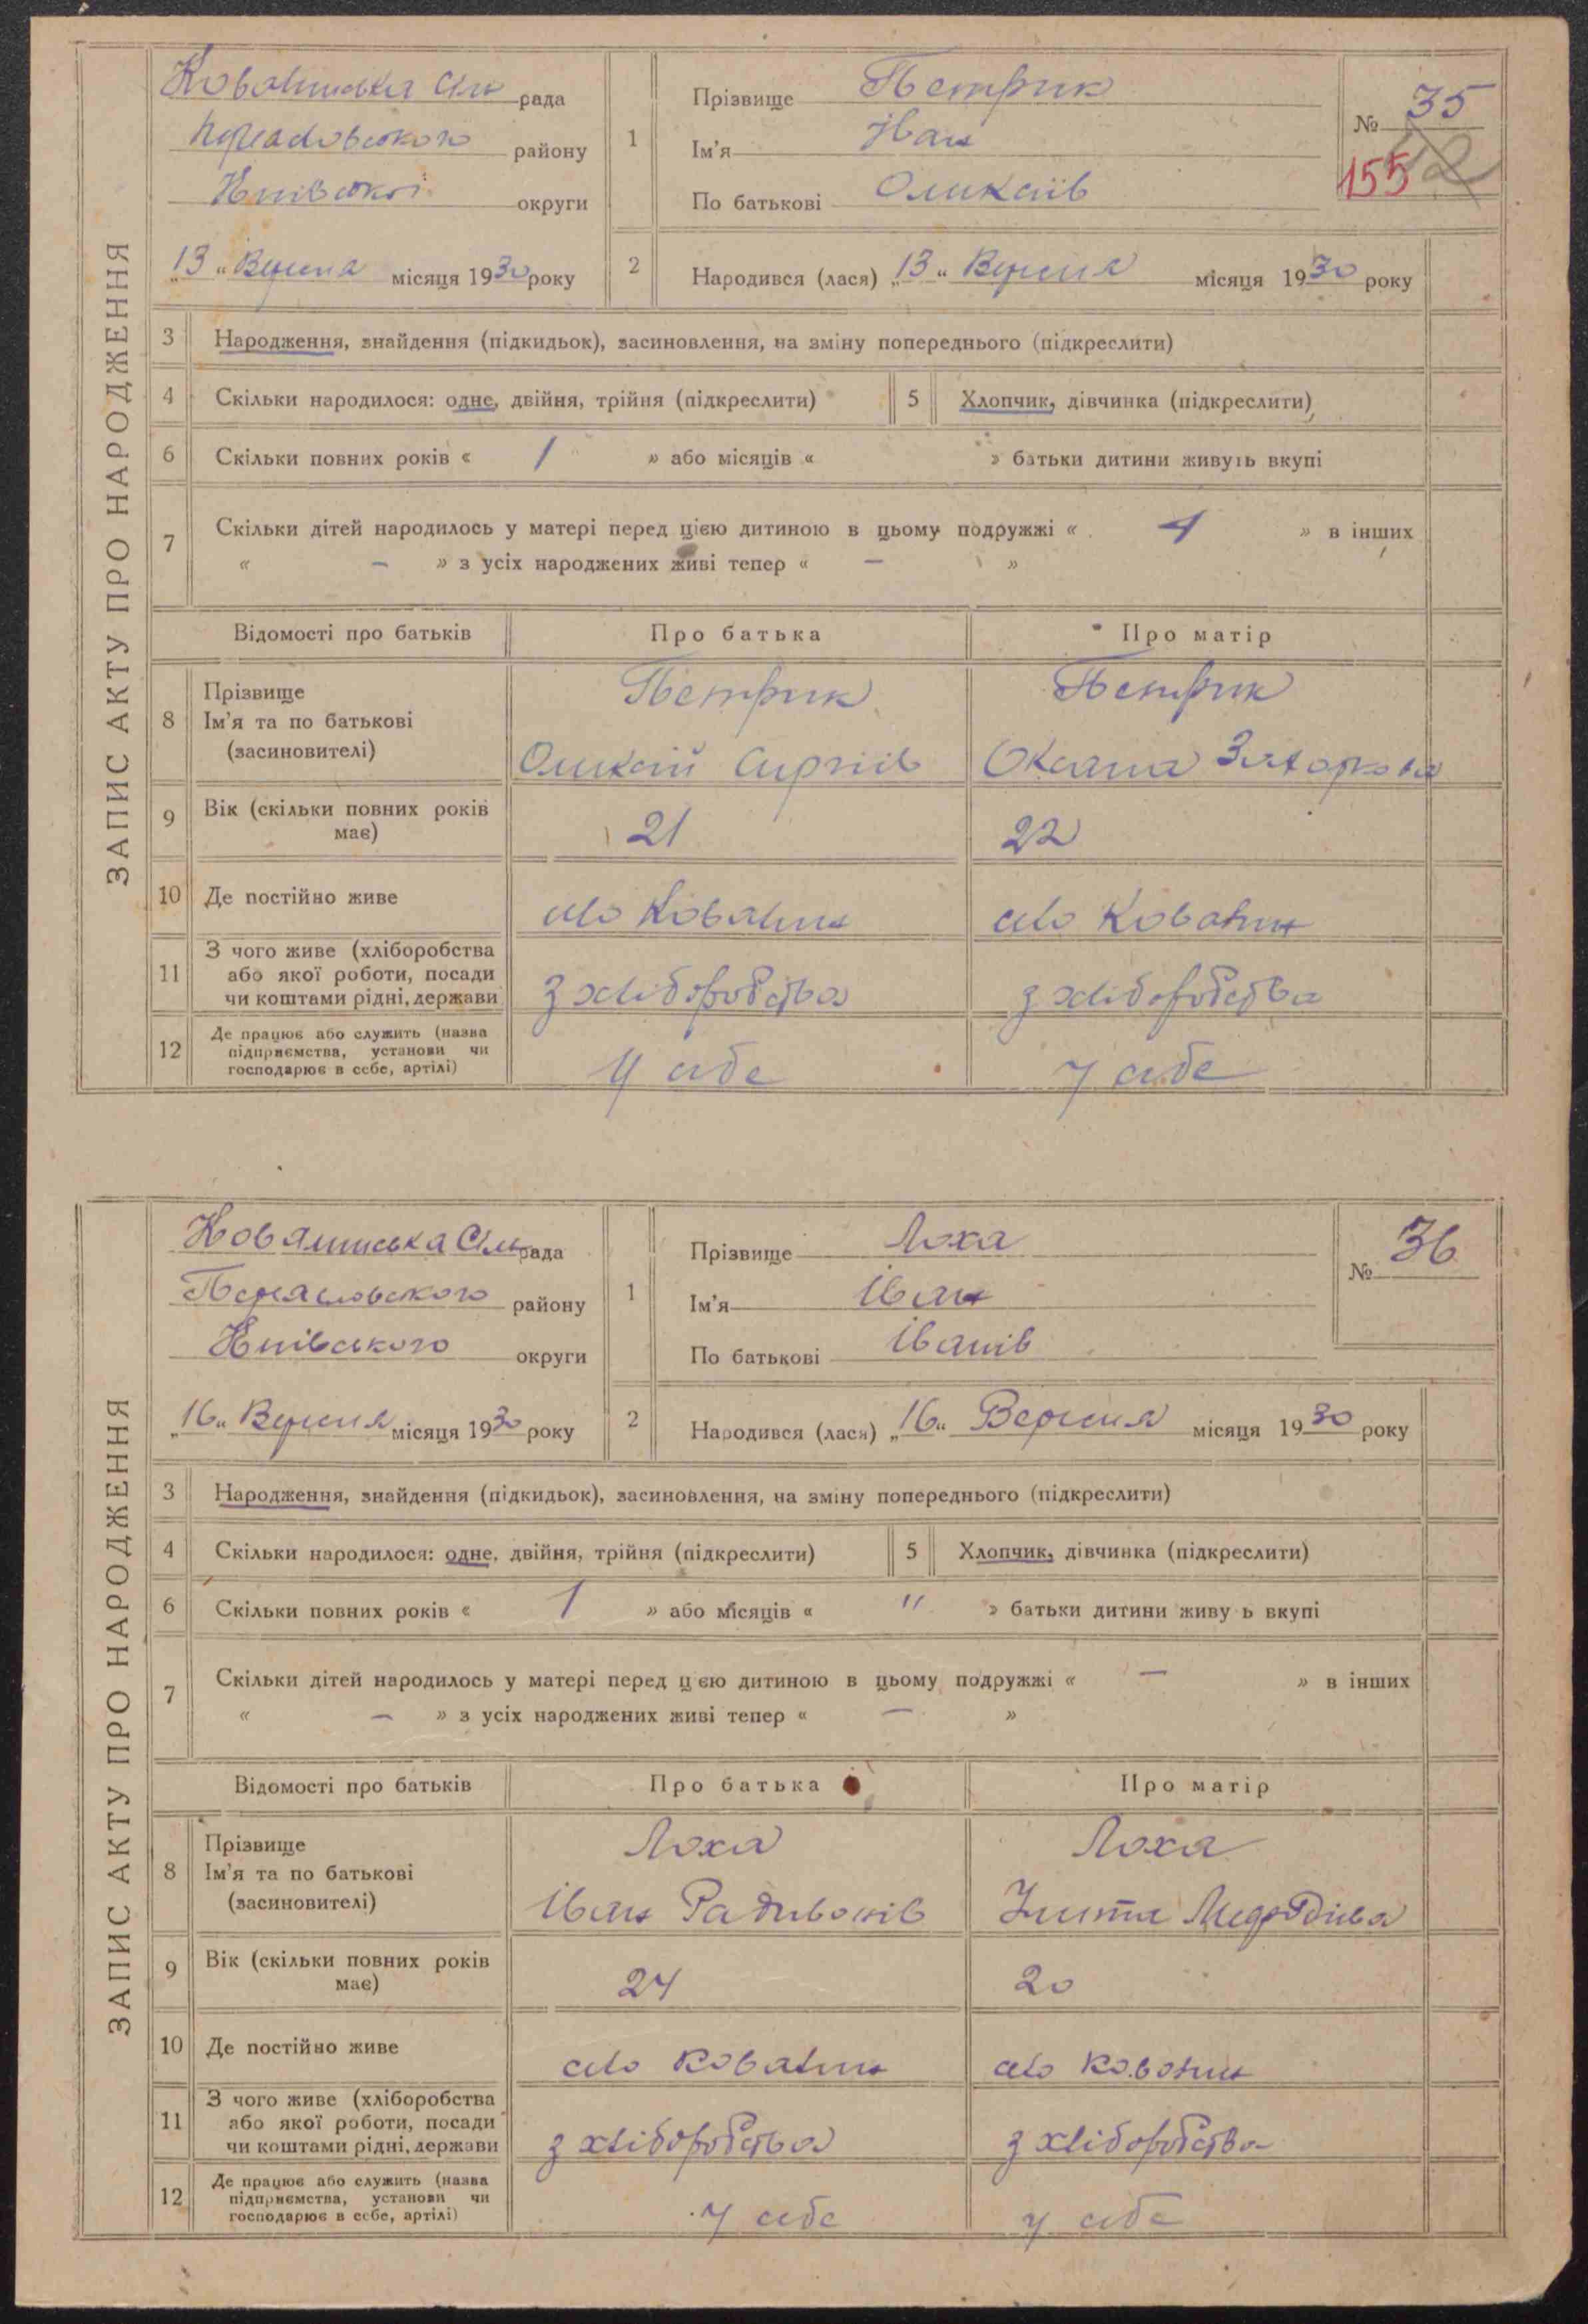 ЗАПИС АКТУ ПРО НАРОДЖЕННЯ
рада
району
округи
„13“ Вересня місяця 1930 року
1
Прізвище Петрик
Ім'я Іван
По батькові Олексіїв
№ 35
155
2
Народився (лася) „13“ Вересня місяця 1930 року
3 Народження, знайдення (підкидьок), засиновлення, на зміну попереднього (підкреслити)
4 Скільки народилося: одне, двійня, трійня (підкреслити) 5 Хлопчик, дівчинка (підкреслити)
6 Скільки повних років « 1 » або місяців « » батьки дитини живуть вкупі
7 Скільки дітей народилось у матері перед цією дитиною в цьому подружжі « » в інших
« – » з усіх народжених живі тепер « – »
Відомості про батьків Про батька Про матір
8 Прізвище
Ім'я та по батькові
(засиновителі)
Петрик
Петрик
Оксана
9 Вік (скільки повних років має) 21 22
10 Де постійно живе село Ковалин село Ковалин
11 З чого живе (хліборобства або якої роботи, посади чи коштами рідні, держави з хліборобства з хліборобства
12 Де працює або служить (назва підприємства, установи чи господарює в себе, артілі) У себе у себе
ЗАПИС АКТУ ПРО НАРОДЖЕННЯ
Ковалинська Сіль рада
району
округи
„16“ Вересня місяця 1930 року
1
Прізвище Лоха
Ім'я Іван
По батькові Іванів
№ 36
2
Народився (лася) „16“ Вересня місяця 1930 року
3 Народження, знайдення (підкидьок), засиновлення, на зміну попереднього (підкреслити)
4 Скільки народилося: одне, двійня, трійня (підкреслити) 5 Хлопчик, дівчинка (підкреслити)
6 Скільки повних років « 1 » або місяців « " » батьки дитини живу ь вкупі
7 Скільки дітей народилось у матері перед ц єю дитиною в цьому подружжі « – » в інших
« – » з усіх народжених живі тепер « – »
Відомості про батьків Про батька Про матір
8 Прізвище
Ім'я та по батькові
(засиновителі)
Лоха
Іван Радивонів
Лоха
9 Вік (скільки повних років має) 24 20
10 Де постійно живе село Ковалин село Ковалин
11 З чого живе (хліборобства або якої роботи, посади чи коштами рідні, держави з хліборобства з хліборобства
12 Де працює або служить (назва підприємства, установи чи господарює в себе, артілі) у себе у себе